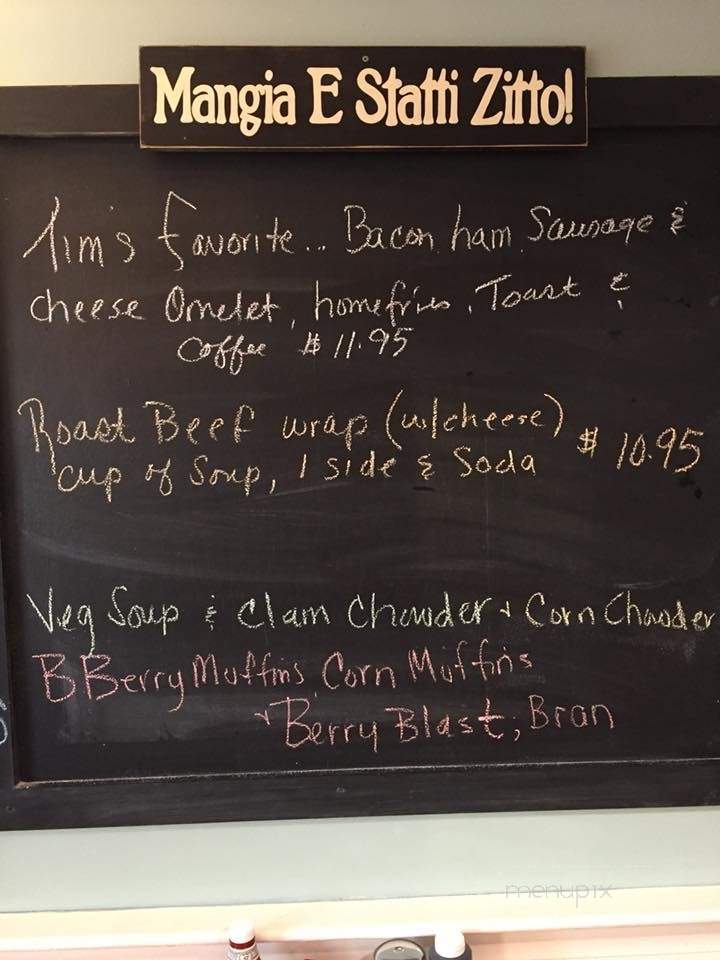 Mangia E Statti Zitto!
Jim's favorite... Bacon, ham, Sausage &
cheese Omelet, homefries, Toast &
coffee $11.95
Roast Beef wrap (w/cheese) $10.95
cup of Soup, 1 side & Soda
Veg Soup & Clam Chowder + Corn Chowder
BBerry Muffins, Corn Muffins
+ Berry Blast; Bran
menupix